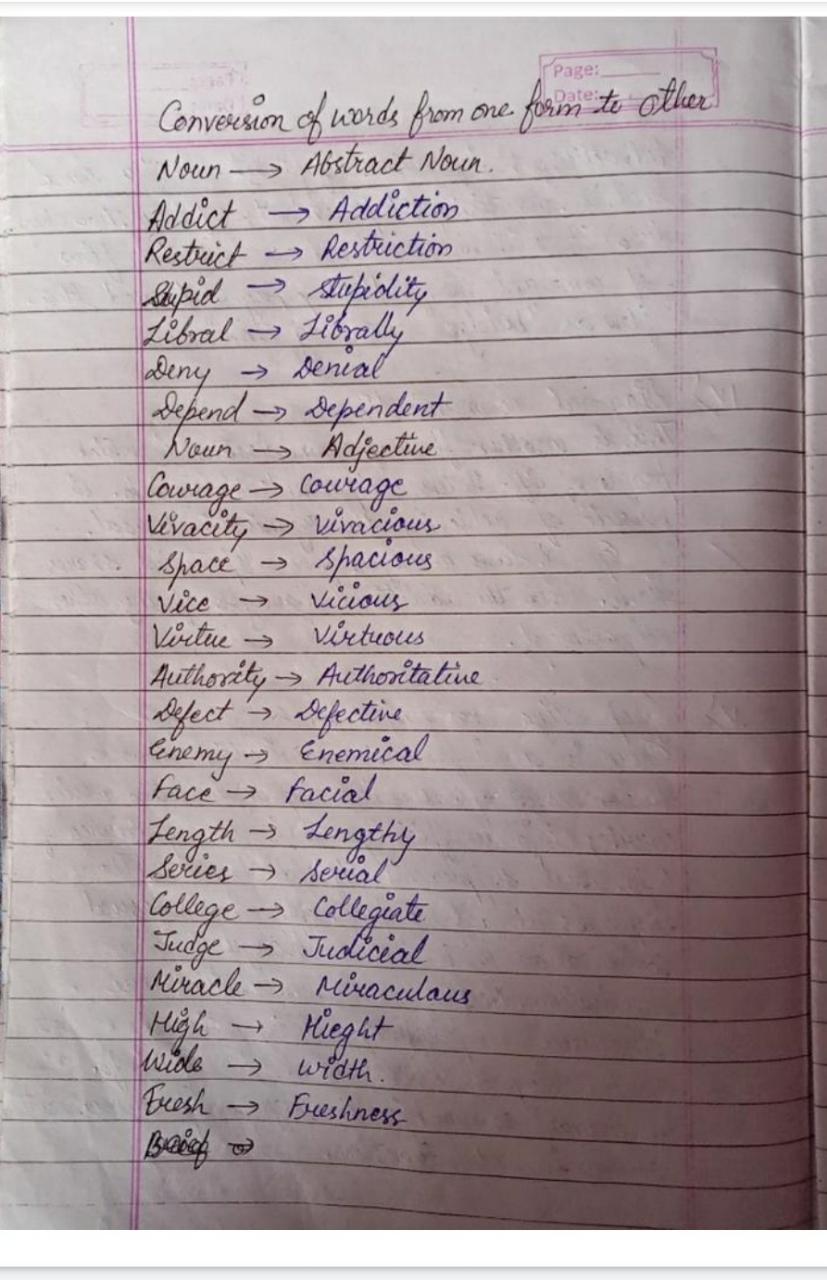 Page:
Date:
Conversion of words from one form to other
Noun → Abstract Noun.
Addict → Addiction
Restrict → Restriction
Stupid → Stupidity
Libral → Librally
Deny → Denial
Depend → Dependent
Noun → Adjective
Courage → Courage
Vivacity → Vivacious
Space → Spacious
Vice → Vicious
Virtue → Virtuous
Authority → Authoritative
Defect → Defective
Enemy → Enemical
Face → Facial
Length → Lengthy
Series → Serial
College → Collegiate
Judge → Judicial
Miracle → Miraculous
High → Hieght
Wide → Width.
Fresh → Freshness